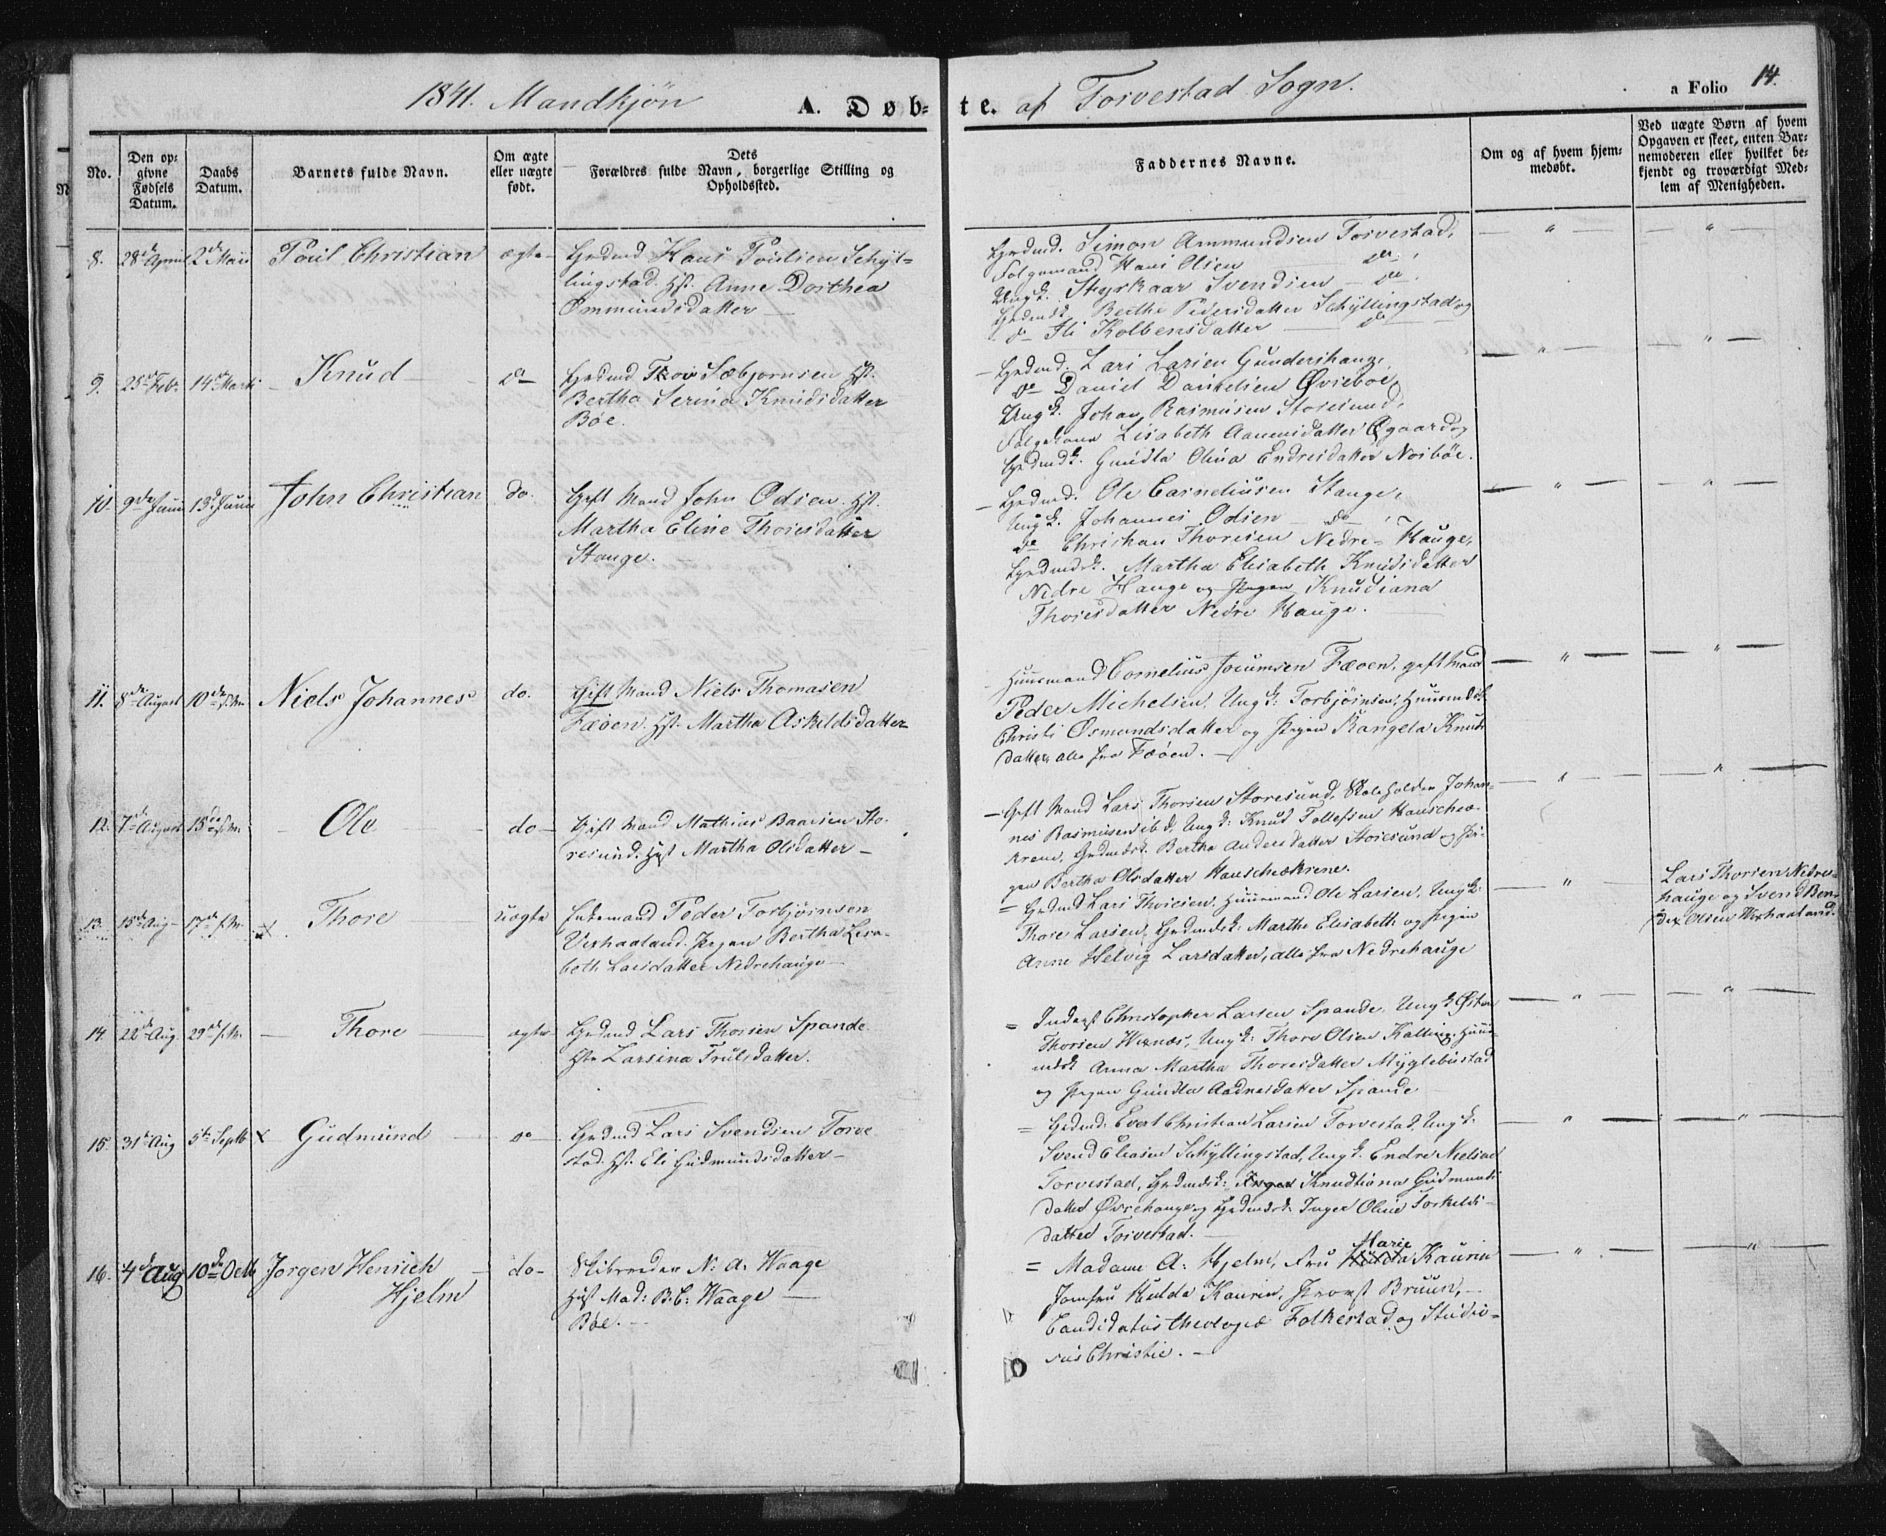 1841. Mandkjön A. Døb-
te. af Torvestad Sogn.
a Folio 14.
No.
Den op-
givne
Fødsels
Datum.
Daabs
Datum.
Barnets fulde Navn.
Om ægte
eller uægte
født.
Dets
Forældres fulde Navn, borgerlige Stilling og
Opholdssted.
Faddernes Navne.
Om og af hvem hjem-
medøbt.
Ved uægte Børn af hvem
Opgaven er skeet, enten Bar-
nemoderen eller hvilket be-
kjendt og troværdigt Med-
lem af Menigheden.
8. 28de April 2de Mai Poul Christian ægte
Grdmd Hans Poulsen Schyl-
lingstad. Hst. Anne Dorthea
Ommundsdatter
Grdmd. Simon Ammundsen Torvestad,
Folgemand Hans Olsen do,
Ungk. Styrkaar Svendsen do
Grdmdsk Berthe Pedersdatter Schyllingstad og
do Eli Kolbensdatter do
9. 25de Febr. 14de Marti Knud do
Grdmd Thor Sæbjornsen Hst.
Bertha Serina Knudsdatter
Böe.
Grdmd. Lars Larsen Gundershaug,
do Daniel Danielsen Øvreboe,
Ungk. Johan Rasmusen Storesund,
Folgekone Lisabeth Aanensdatter Øgaard og
Grdmdsk. Gundla Olina Endresdatter Norböe.
10. 9de Juni 13de Juni John Christian do.
Gift Mand John Odsen Hst.
Martha Eline Thoresdatter
Stange.
Grdmd. Ole Corneliusen Stange,
Ungk. Johannes Odsen do,
do Christian Thoresen Nedre-Hauge,
Grdmdsk. Martha Elisabeth Knudsdatter
Nedre Hauge og Pigen Knudiana
Thoresdatter Nedre Hauge.
11. 8de August 10de s. M. Niels Johannes do.
Gift Mand Niels Thomasen
Fæöen. Hst. Martha Askildsdatter
Huusmand Cornelius Jocumsen Fæoen, gift Mand
Peder Michelsen, Ungk: Torbjörnsen, Huusmdsk
Christi Osmundsdatter og Pigen Rangela Knuds
datter alle fra Fæöen.
12. 7de August 15de s. M. Ole do
Gift Mand Mathias Baarsen Sto-
resund. Hst Martha Olsdatter
Gift Mand Lars Thorsen Storesund, Skoleholder Johan-
nes Rasmusen ibd, Ungk: Knud Tollefsen Hauschee-
krene, Grdmdsk. Bertha Andersdatter Storesund og Pi-
gen Bertha Olsdatter Hauscheekrene.
13. 15de Aug 17de s. M. x Thore uægte
Inderst Peder Torbjörnsen
Vexhaaland. Pigen Bertha Lisa-
beth Larsdatter Nedrehauge
Grdmd Lars Thoresen, Huusmand Ole Larsen, Ungk.
Thore Larsen, Grdmdsk: Marthe Elisabeth og Pigen
Anne Helvig Larsdatter, alle fra Nedrehauge
Lars Thorsen Nedre-
hauge og Svend Ben-
dix Olsen Wexhaaland.
14. 22de Aug. 29de s. M. Thore ægte
Grdmd Lars Thorsen Spande
Hst Larsina Trulsdatter.
Inderst Christopher Larsen Spande, Ungk. Østen
Thorsen Wicnæs, Ungk. Thore Olsen Kalling, Huus-
mdsk Anna Martha Thoresdatter Myglebustad
og Pigen Gundla Aadnesdatter Spande
15. 31de Aug 5te Septb x Gudmund do
Grdmd Lars Svendsen Torve
stad. Hst. Eli Gudmundsdatter
Grdmd: Evert Christian Larsen Torvestad, Ungk.
Svend Eliasen Schyllingstad, Ungk. Endre Nielsen
Torvestad, Grdmdsk: Knudtiana Gudmunds
datter Øvrehauge og Grdmdsk. Inger Oline Torkelds-
datter Torvestad.
16. 4de Aug 10de Octb Jorgen Henrich
Hjelm do
Skibsreder N: A. Waage
Hust Mad: B. C: Waage
Böe.
Madame A. Hjelm, Fru Marie Kaurin
Jomfru Hulda Kaurin, Provst Bruun,
Candidatus theologiæ Folkestad og Studio-
sus Christie.